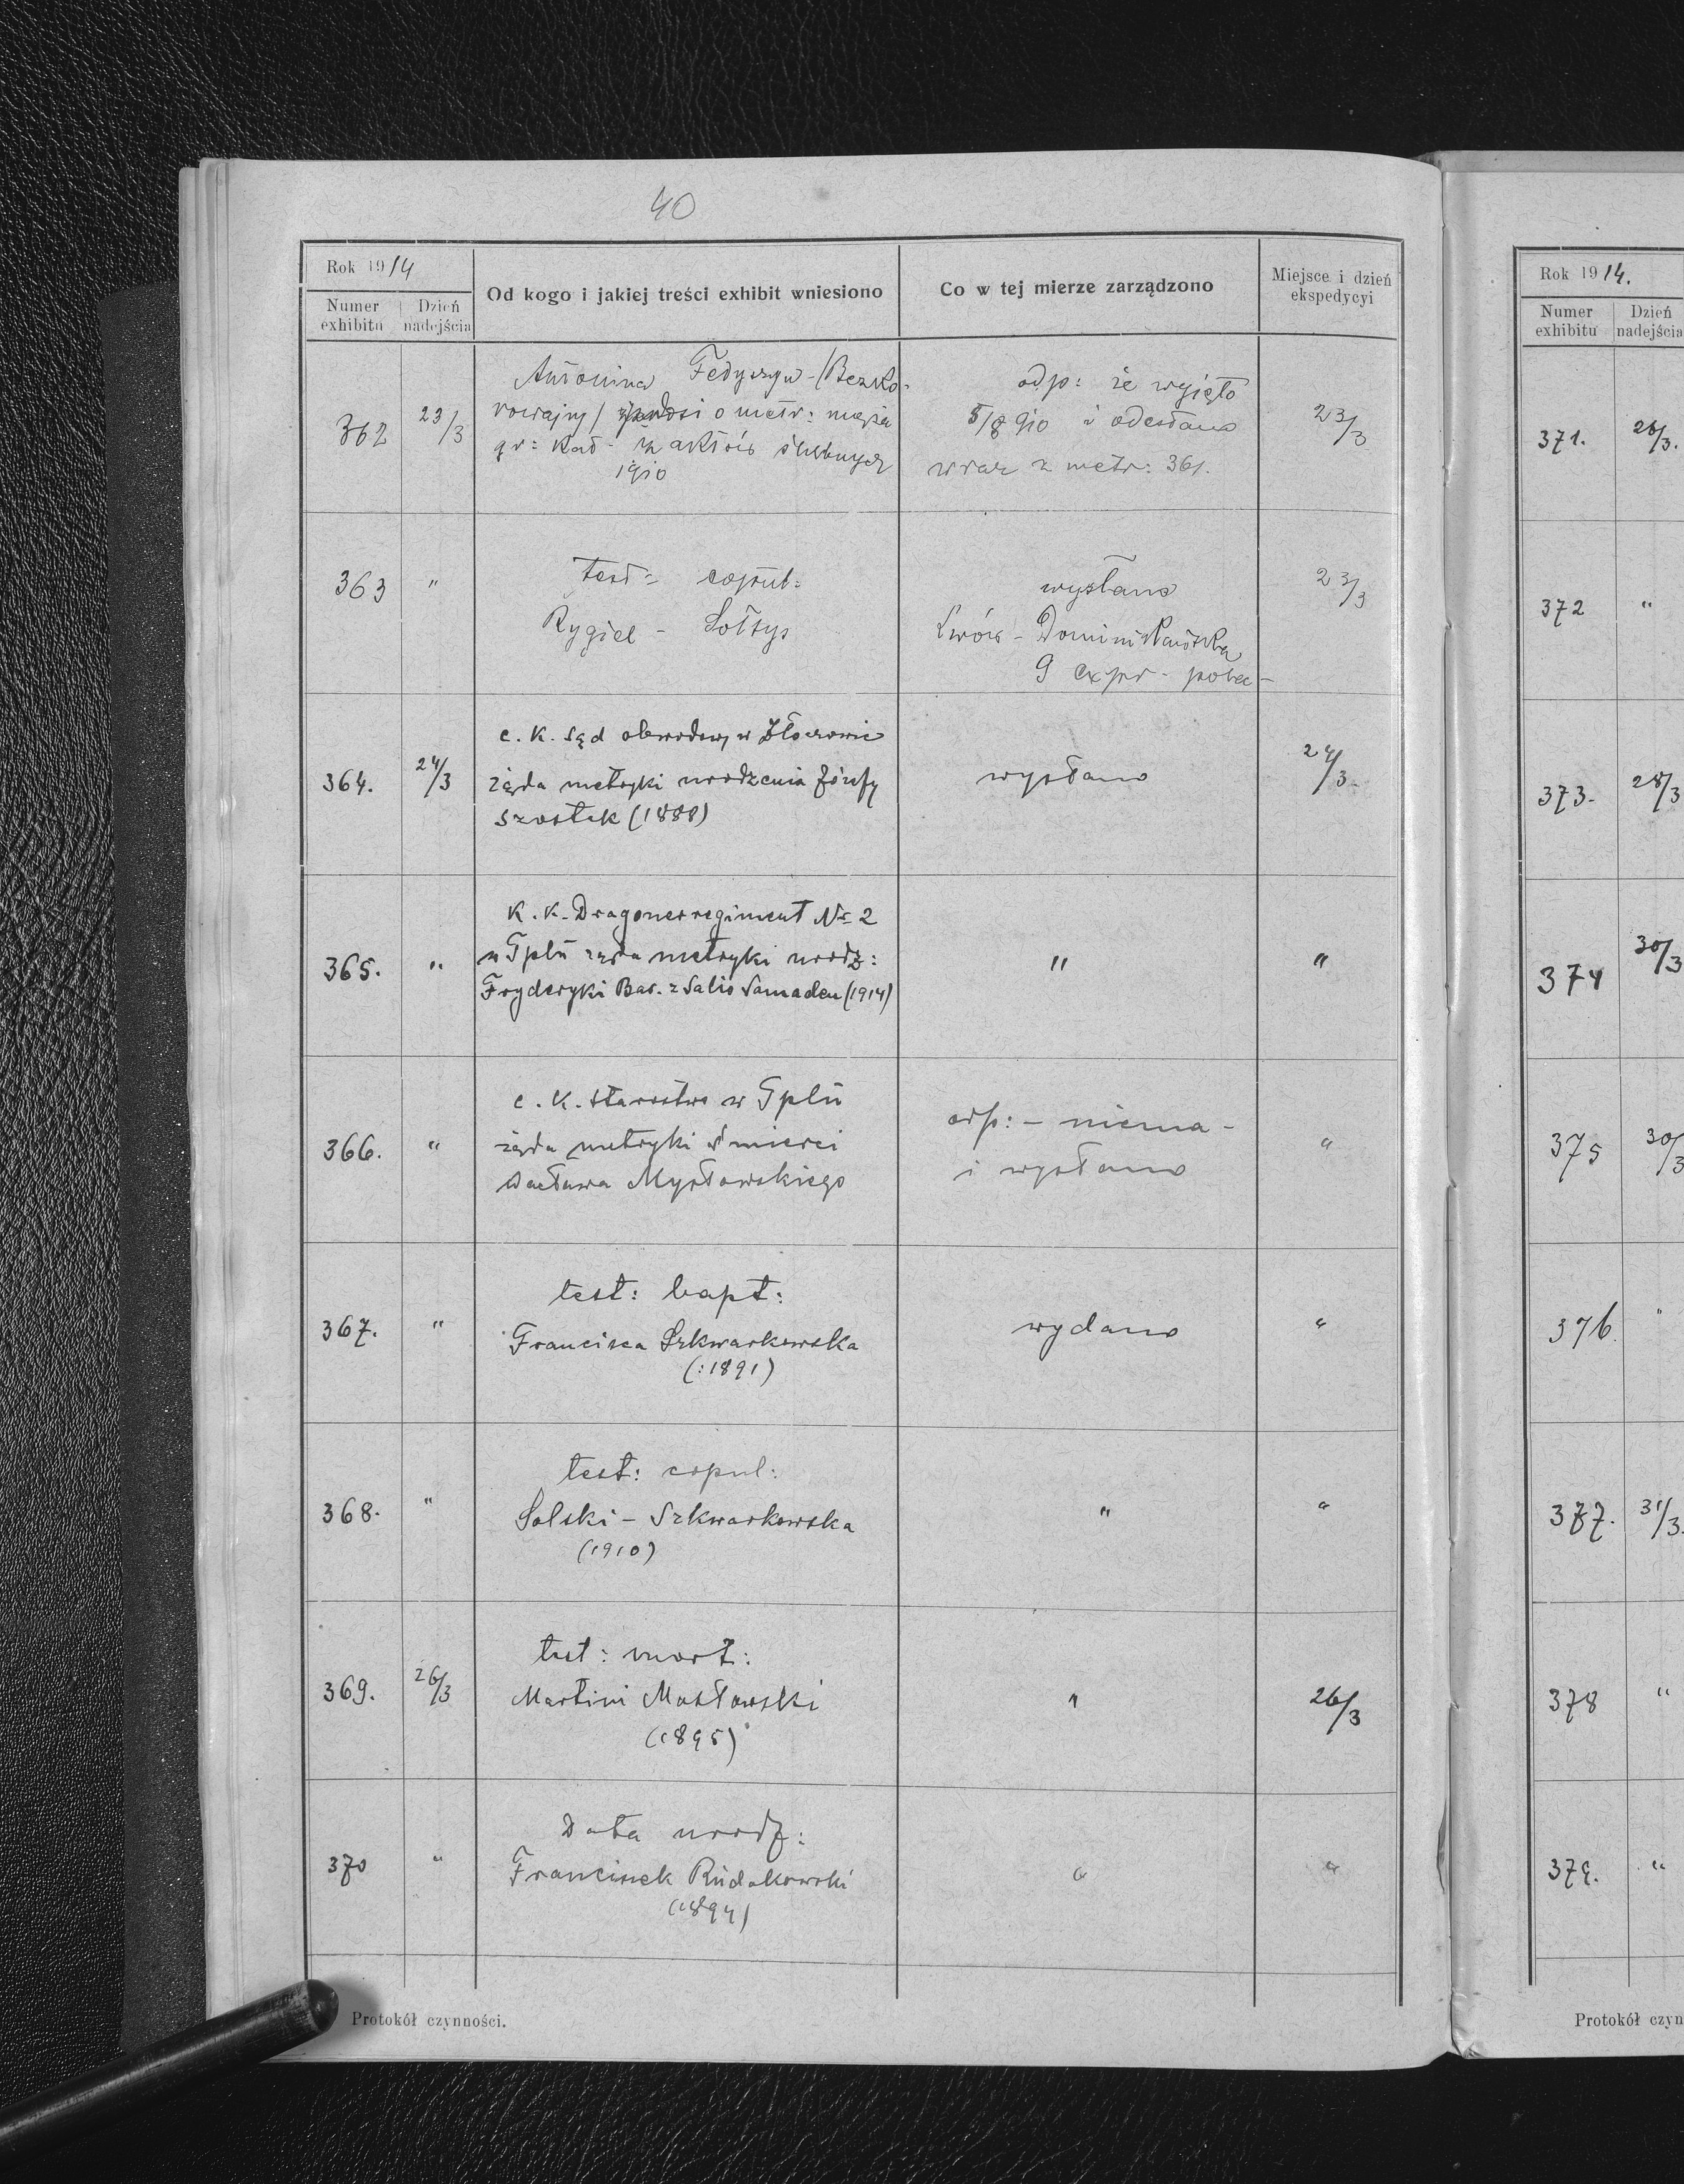 40
Rok 1914
Numer exhibitu
Dzień nadejścia
Od kogo i jakiej treści exhibit wniesiono
Co w tej mierze zarządzono
Miejsce i dzień ekspedycyi
362
23/3
Antonina Fedyszyn - (Bezko-
rowajny) prosi o metr: męża
gr: kat - z aktów ślubnych
1910
odp: że wyjęto
5/8 910 i odesłano
wraz z metr: 361.
23/3
363
"
test: copul:
Rygiel - Sołtys
wysłano
Lwów - Dominikańska
9 expr - polec -
23/3
364.
24/3
c. k. Sąd obwodowy w Złoczowie
żąda metryki urodzenia Józefy
Szostek (1888)
wysłano
24/3.
365.
"
K. K. Dragonerregiment Nr 2
w Tplu żąda metryki urodz:
Fryderyki Bar. z Salis Samaden (1914)
"
"
366.
"
c. k. starostwo w Tplu
żąda metryki śmierci
Wacława Mysłowskiego
odp: - niema -
i wysłano
"
367.
"
test: bapt:
Francisca Szkwarkowska
(:1891)
wydano
"
368.
"
test: copul:
Solski - Szkwarkowska
(1910)
"
"
369.
26/3
test: mort:
Martini Masłowski
(1895)
"
26/3
370
"
Data urodz:
Franciszek Rudakowski
(1894)
"
"
Protokół czynności.
Rok 1914.
Numer exhibitu
Dzień nadejścia
371.
26/3.
372
"
373.
28/3
374
30/3
375
30/3
376.
"
377.
31/3.
378
"
379.
"
Protokół czyn